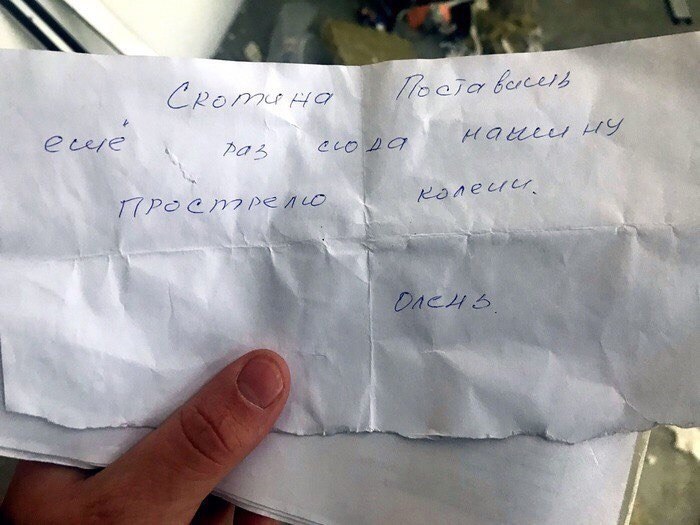 Скотина Поставишь
ещё раз сюда машину
Прострелю колени.
Олень.